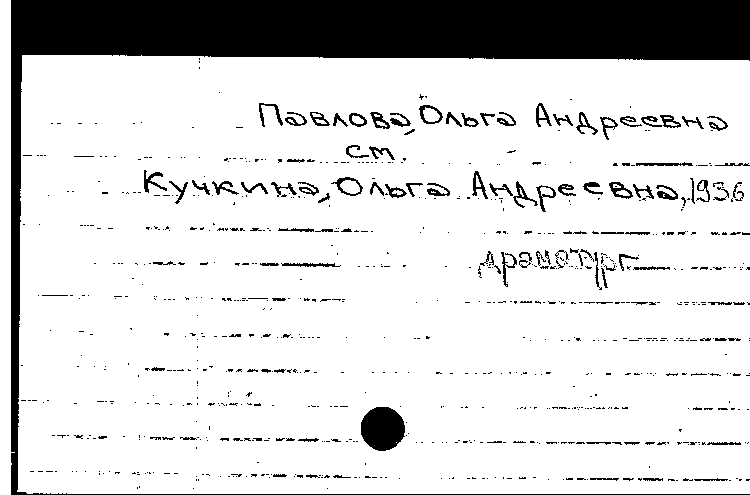 Павлова, Ольга Андреевна
см.
Кучкина, Ольга Андреевна, 1936
драматург